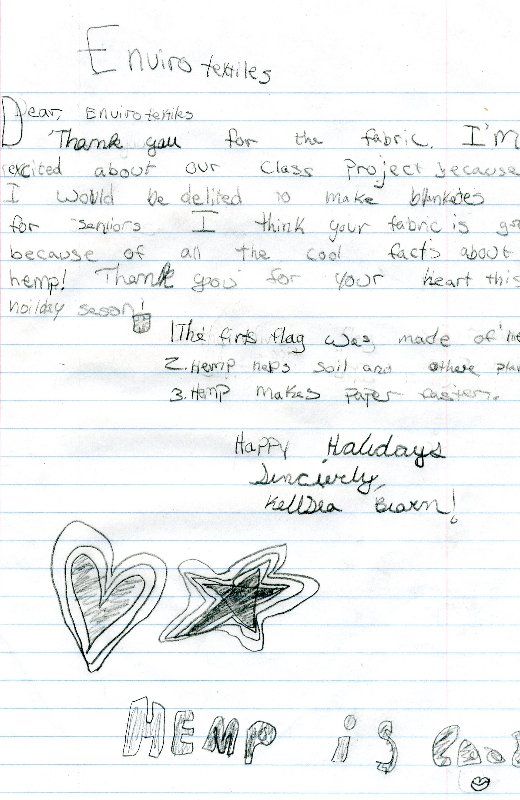 Enviro textiles
Dear, Envirotextiles
Thank you for the fabric. I'm
excited about our Class Project because
I would be delited to make blankates
for seniors. I think your fabric is
because of all the cool facts about
hemp! Thank you for your heart this
hoilday season!
1 The firts flag was made of
2. Hemp heps soil and othere
3. Hemp makes paper easter.
Happy Halidays
Sincierly,
Kellsea Bearn!
HEMP is cool